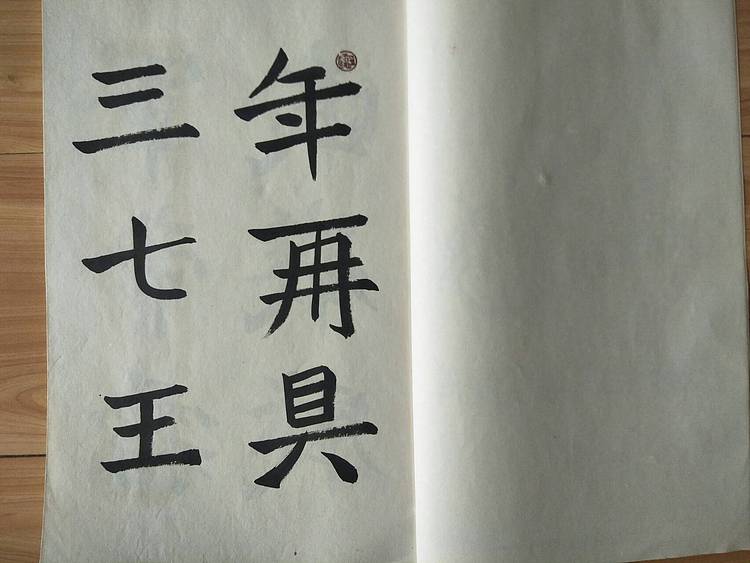 年再具
三七王